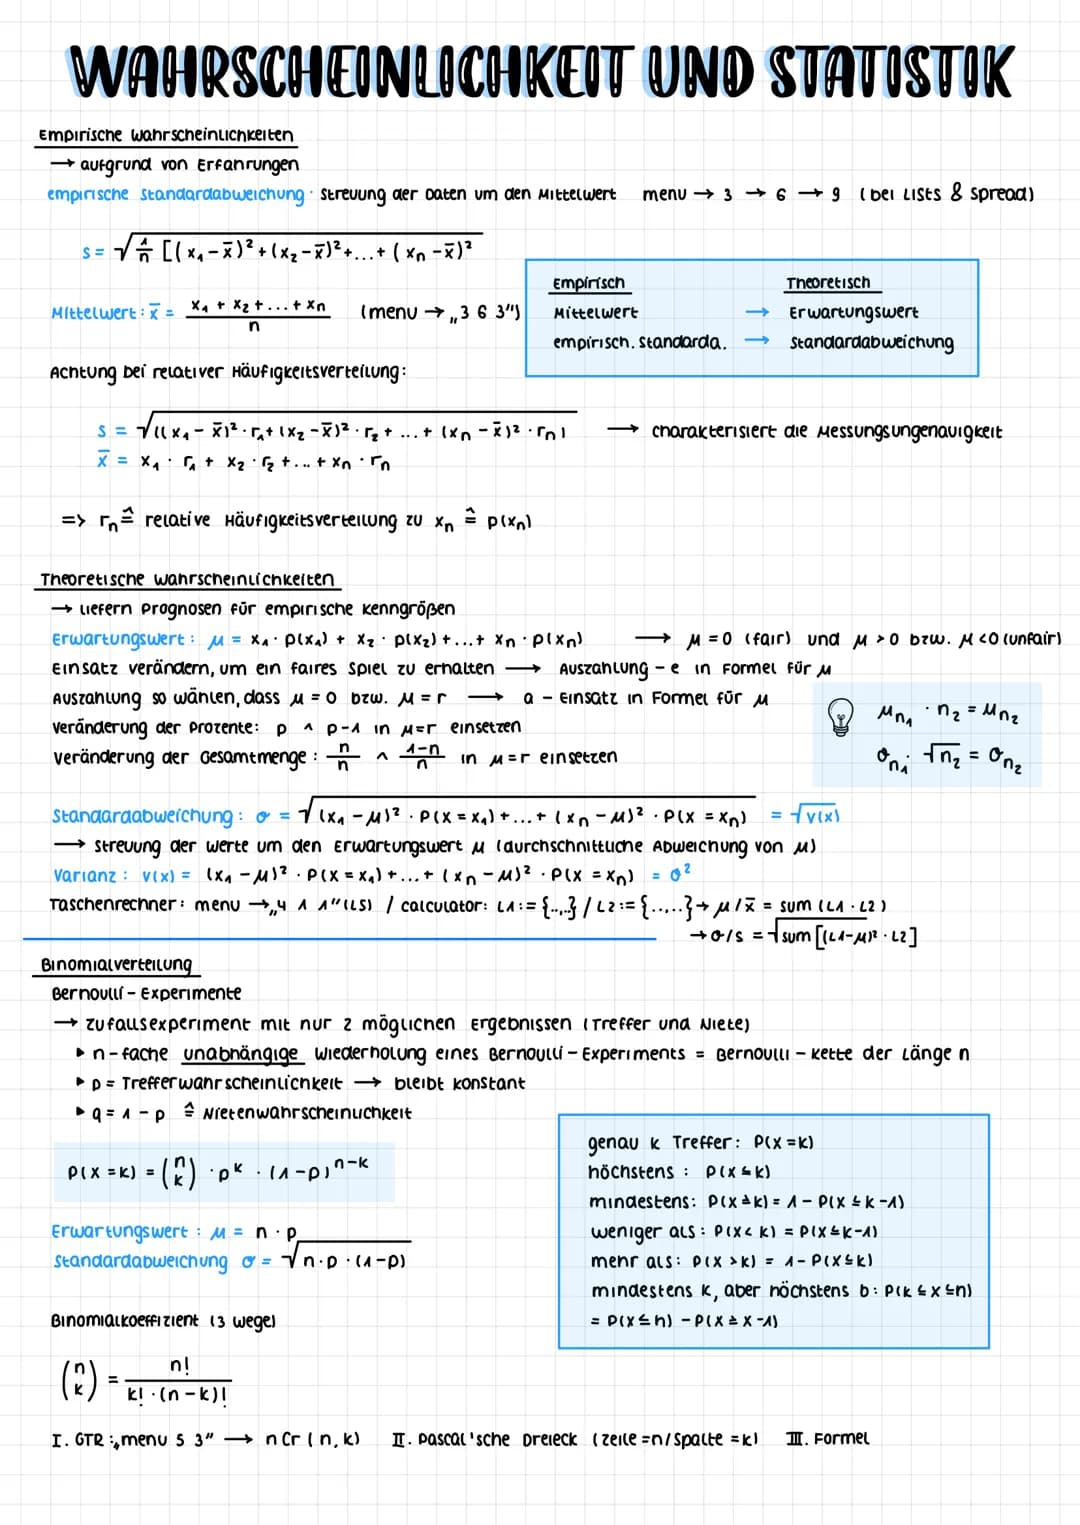 WAHRSCHEINLICHKEIT UND STATISTIK
Empirische Wahrscheinlichkeiten
→ aufgrund von Erfahrungen
empirische Standardabweichung: Streuung der Daten um den Mittelwert menu → 3 → 6 → 9 (bei Lists & Spread)
s = √(1/n [(x₁ - x̄)² + (x₂ - x̄)² + ... + (xₙ - x̄)²
Mittelwert: x̄ = (x₁ + x₂ + ... + xₙ)/n (menu → „3 6 3")
Empirisch Theoretisch
Mittelwert → Erwartungswert
empirisch. Standarda. → Standardabweichung
Achtung bei relativer Häufigkeitsverteilung:
s = √((x₁ - x̄)² · r₁ + (x₂ - x̄)² · r₂ + ... + (xₙ - x̄)² · rₙ) → charakterisiert die Messungsungenauigkeit
x̄ = x₁ · r₁ + x₂ · r₂ + ... + xₙ · rₙ
=> rₙ ≙ relative Häufigkeitsverteilung zu xₙ ≙ P(xₙ)
Theoretische Wahrscheinlichkeiten
→ liefern Prognosen für empirische Kenngrößen
Erwartungswert: μ = x₁ · P(x₁) + x₂ · P(x₂) + ... + xₙ · P(xₙ) → μ = 0 (fair) und μ > 0 bzw. μ < 0 (unfair)
Einsatz verändern, um ein faires Spiel zu erhalten → Auszahlung - e in Formel für μ
Auszahlung so wählen, dass μ = 0 bzw. μ = r → a - Einsatz in Formel für μ
Veränderung der Prozente: p ^ p-1 in μ=r einsetzen
Veränderung der Gesamtmenge: n/n ^ (1-n)/n in μ=r einsetzen
μₙ₁ · n₂ = μₙ₂
σₙ₁ · √n₂ = σₙ₂
Standardabweichung: σ = √((x₁ - μ)² · P(X = x₁) + ... + (xₙ - μ)² · P(X = xₙ) = √V(x)
→ Streuung der Werte um den Erwartungswert μ (durchschnittliche Abweichung von μ)
Varianz: V(x) = (x₁ - μ)² · P(X = x₁) + ... + (xₙ - μ)² · P(X = xₙ) = σ²
Taschenrechner: menu → „4 1 1" (LS) / calculator: L1:= {..,..} / L2:= {..,..} → μ/x̄ = sum (L1 · L2)
→ σ/s = √sum [(L1-μ)² · L2]
Binomialverteilung
Bernoulli - Experimente
→ Zufallsexperiment mit nur 2 möglichen Ergebnissen (Treffer und Niete)
▸ n-fache unabhängige Wiederholung eines Bernoulli - Experiments = Bernoulli - Kette der Länge n
▸ p = Trefferwahrscheinlichkeit → bleibt konstant
▸ q = 1 - p ≙ Nietenwahrscheinlichkeit
P(X = k) = (n k) · pᵏ · (1-p)ⁿ⁻ᵏ
Erwartungswert: μ = n · p
Standardabweichung σ = √n·p·(1-p)
genau k Treffer: P(X = k)
höchstens: P(X ≤ k)
mindestens: P(X ≥ k) = 1 - P(X ≤ k - 1)
weniger als: P(X < k) = P(X ≤ k-1)
mehr als: P(X > k) = 1 - P(X ≤ k)
mindestens k, aber höchstens b: P(k ≤ X ≤ n)
= P(X ≤ h) - P(X ≥ X - 1)
Binomialkoeffizient (3 Wege)
(n k) = n!/(k! · (n-k)!)
I. GTR: „menu 5 3" → nCr (n, k) II. Pascal'sche Dreieck (Zeile =n/ Spalte =k) III. Formel